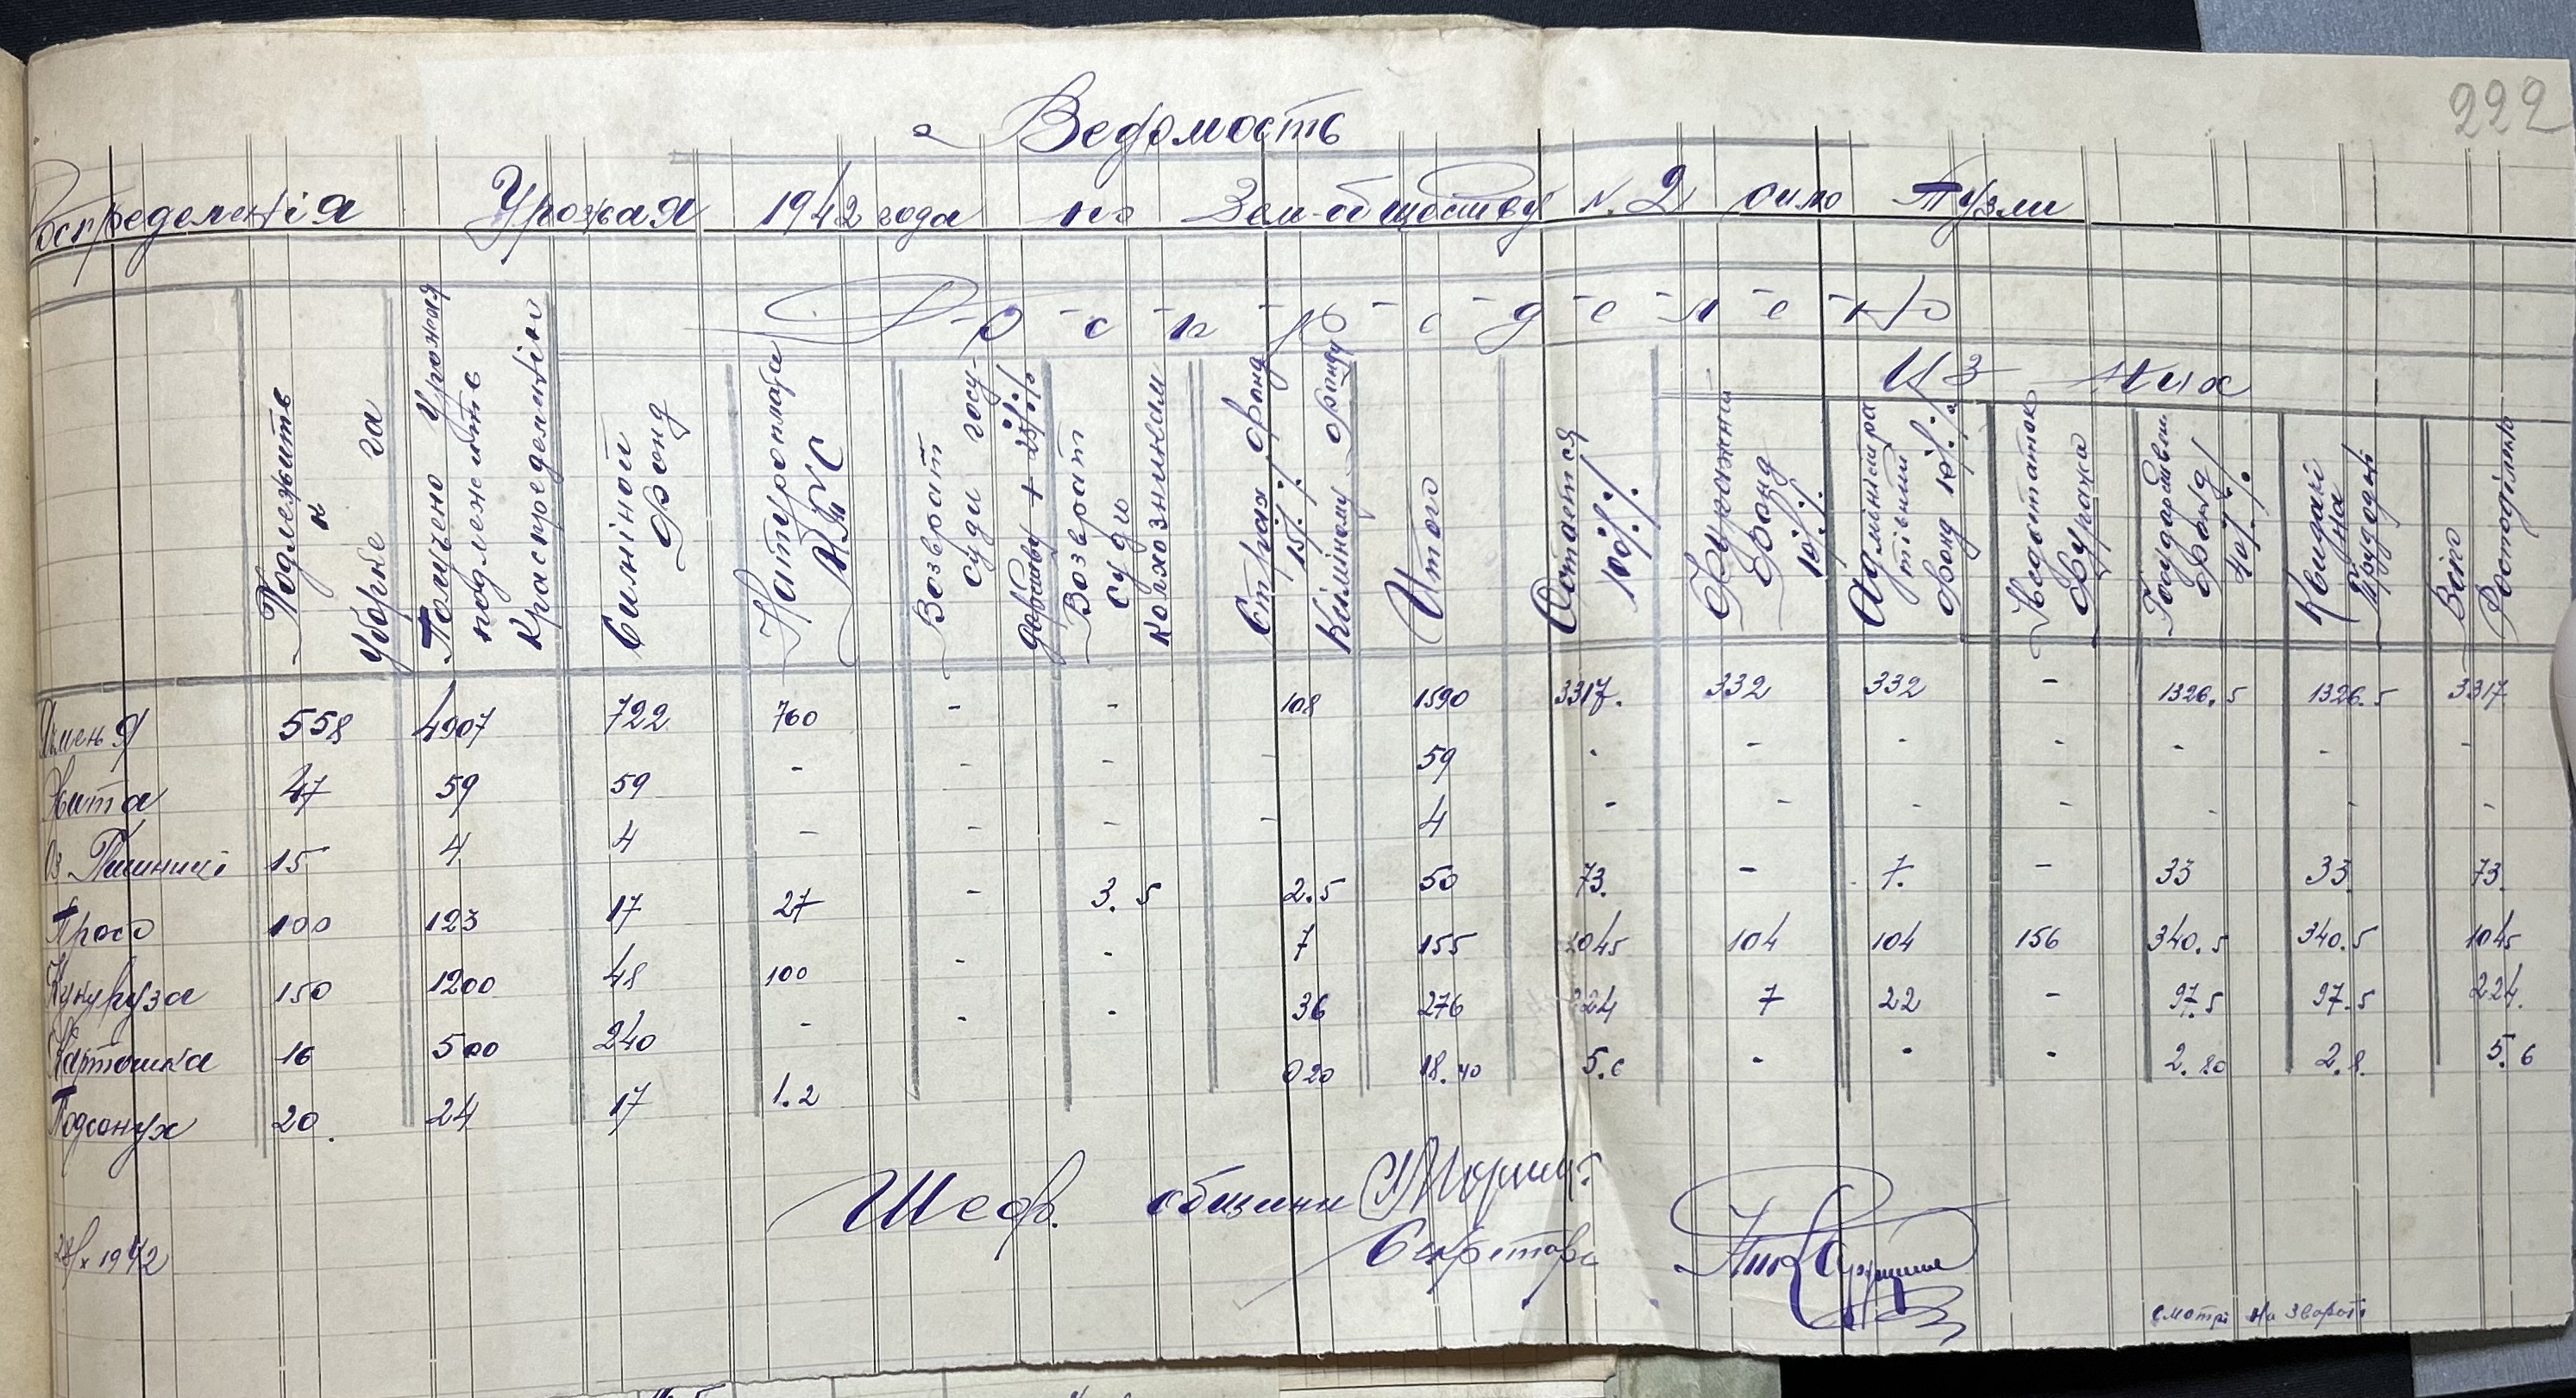 222
Ведомость
Роспределенія Урожая 1942 года по Зем-обществу N. 2 село Тузли
Роспределено
Из них
Подлежить к уборке га
Получено Урожая подлежить к распределенію
Насіння
Фонд
Натуроплата МТС
Возврат суди государству + 25%
Возврат суди колхозникам
Страх фонд 15%
Итого
Остается 100%
Фуражний Фонд 10%
Адміністративний Фонд 10%
Недостаток Фуража
Государствен Фонд 40%
На Трудодні
Всіго Росподілино
Ячменя 558 4907 722 760 - - 108 1590 3317. 332 332 - 1326.5 1326.5 3317
Жита 47 59 59 - - - - 59 - - - - - - -
Оз Пшениці 15 4 4 - - - - 4 - - - - - - -
Просо 100 123 17 27 - 3.5 2.5 50 73. - 7. - 33 33 73.
Кукуруза 150 1200 48 100 - - 7 155 1045 104 104 156 340.5 340.5 1045
Картошка 16 500 240 - - - 36 276 224 7 22 - 97.5 97.5 224.
Подсонух 20. 24 17 1.2 020 18.40 5.6 - - - 2.80 2.8. 5.6
Шеф. общини
Секретарь
1942
смотрі на звороті